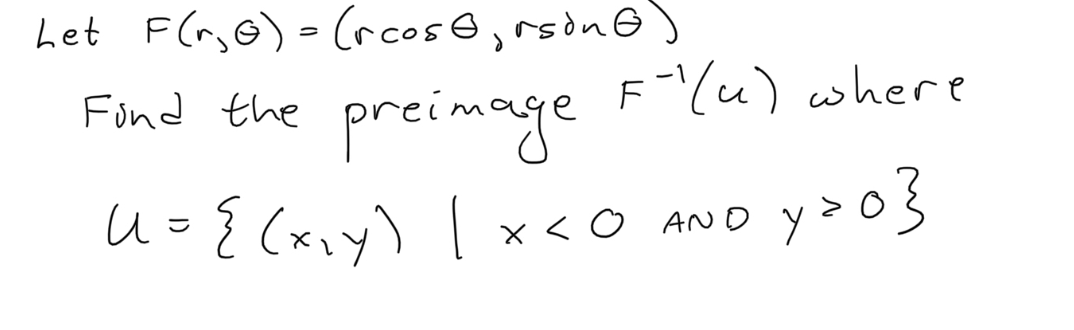 Let F(r,θ) = (rcosθ, rsinθ)
Find the preimage F⁻¹(u) where
U = {(x,y) | x < 0 AND y > 0}